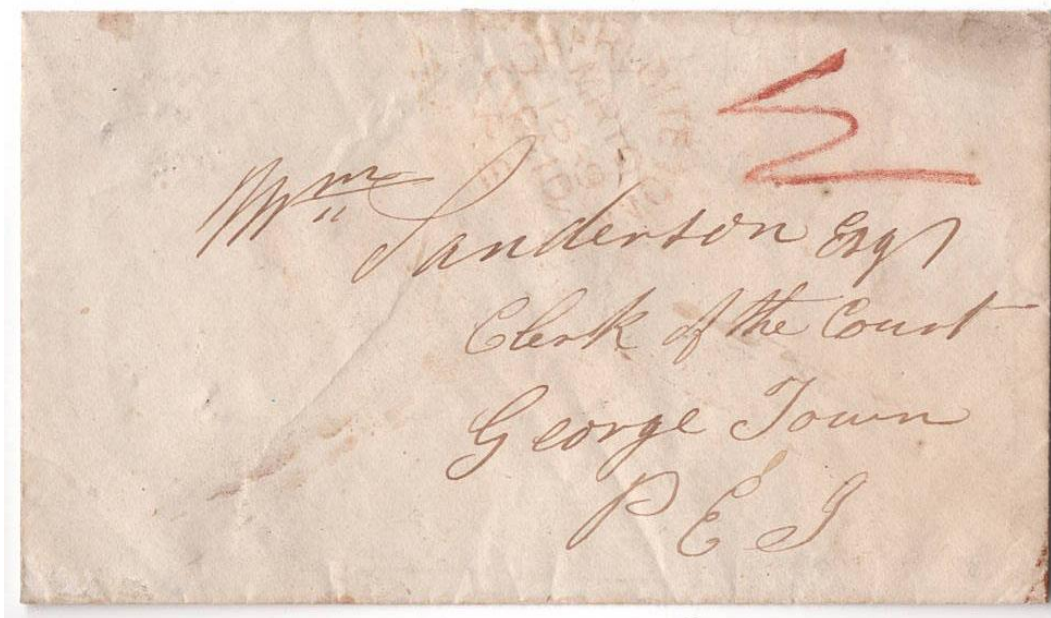 Wm Sanderson Esqr
Clerk of the Court
George Town
P E I